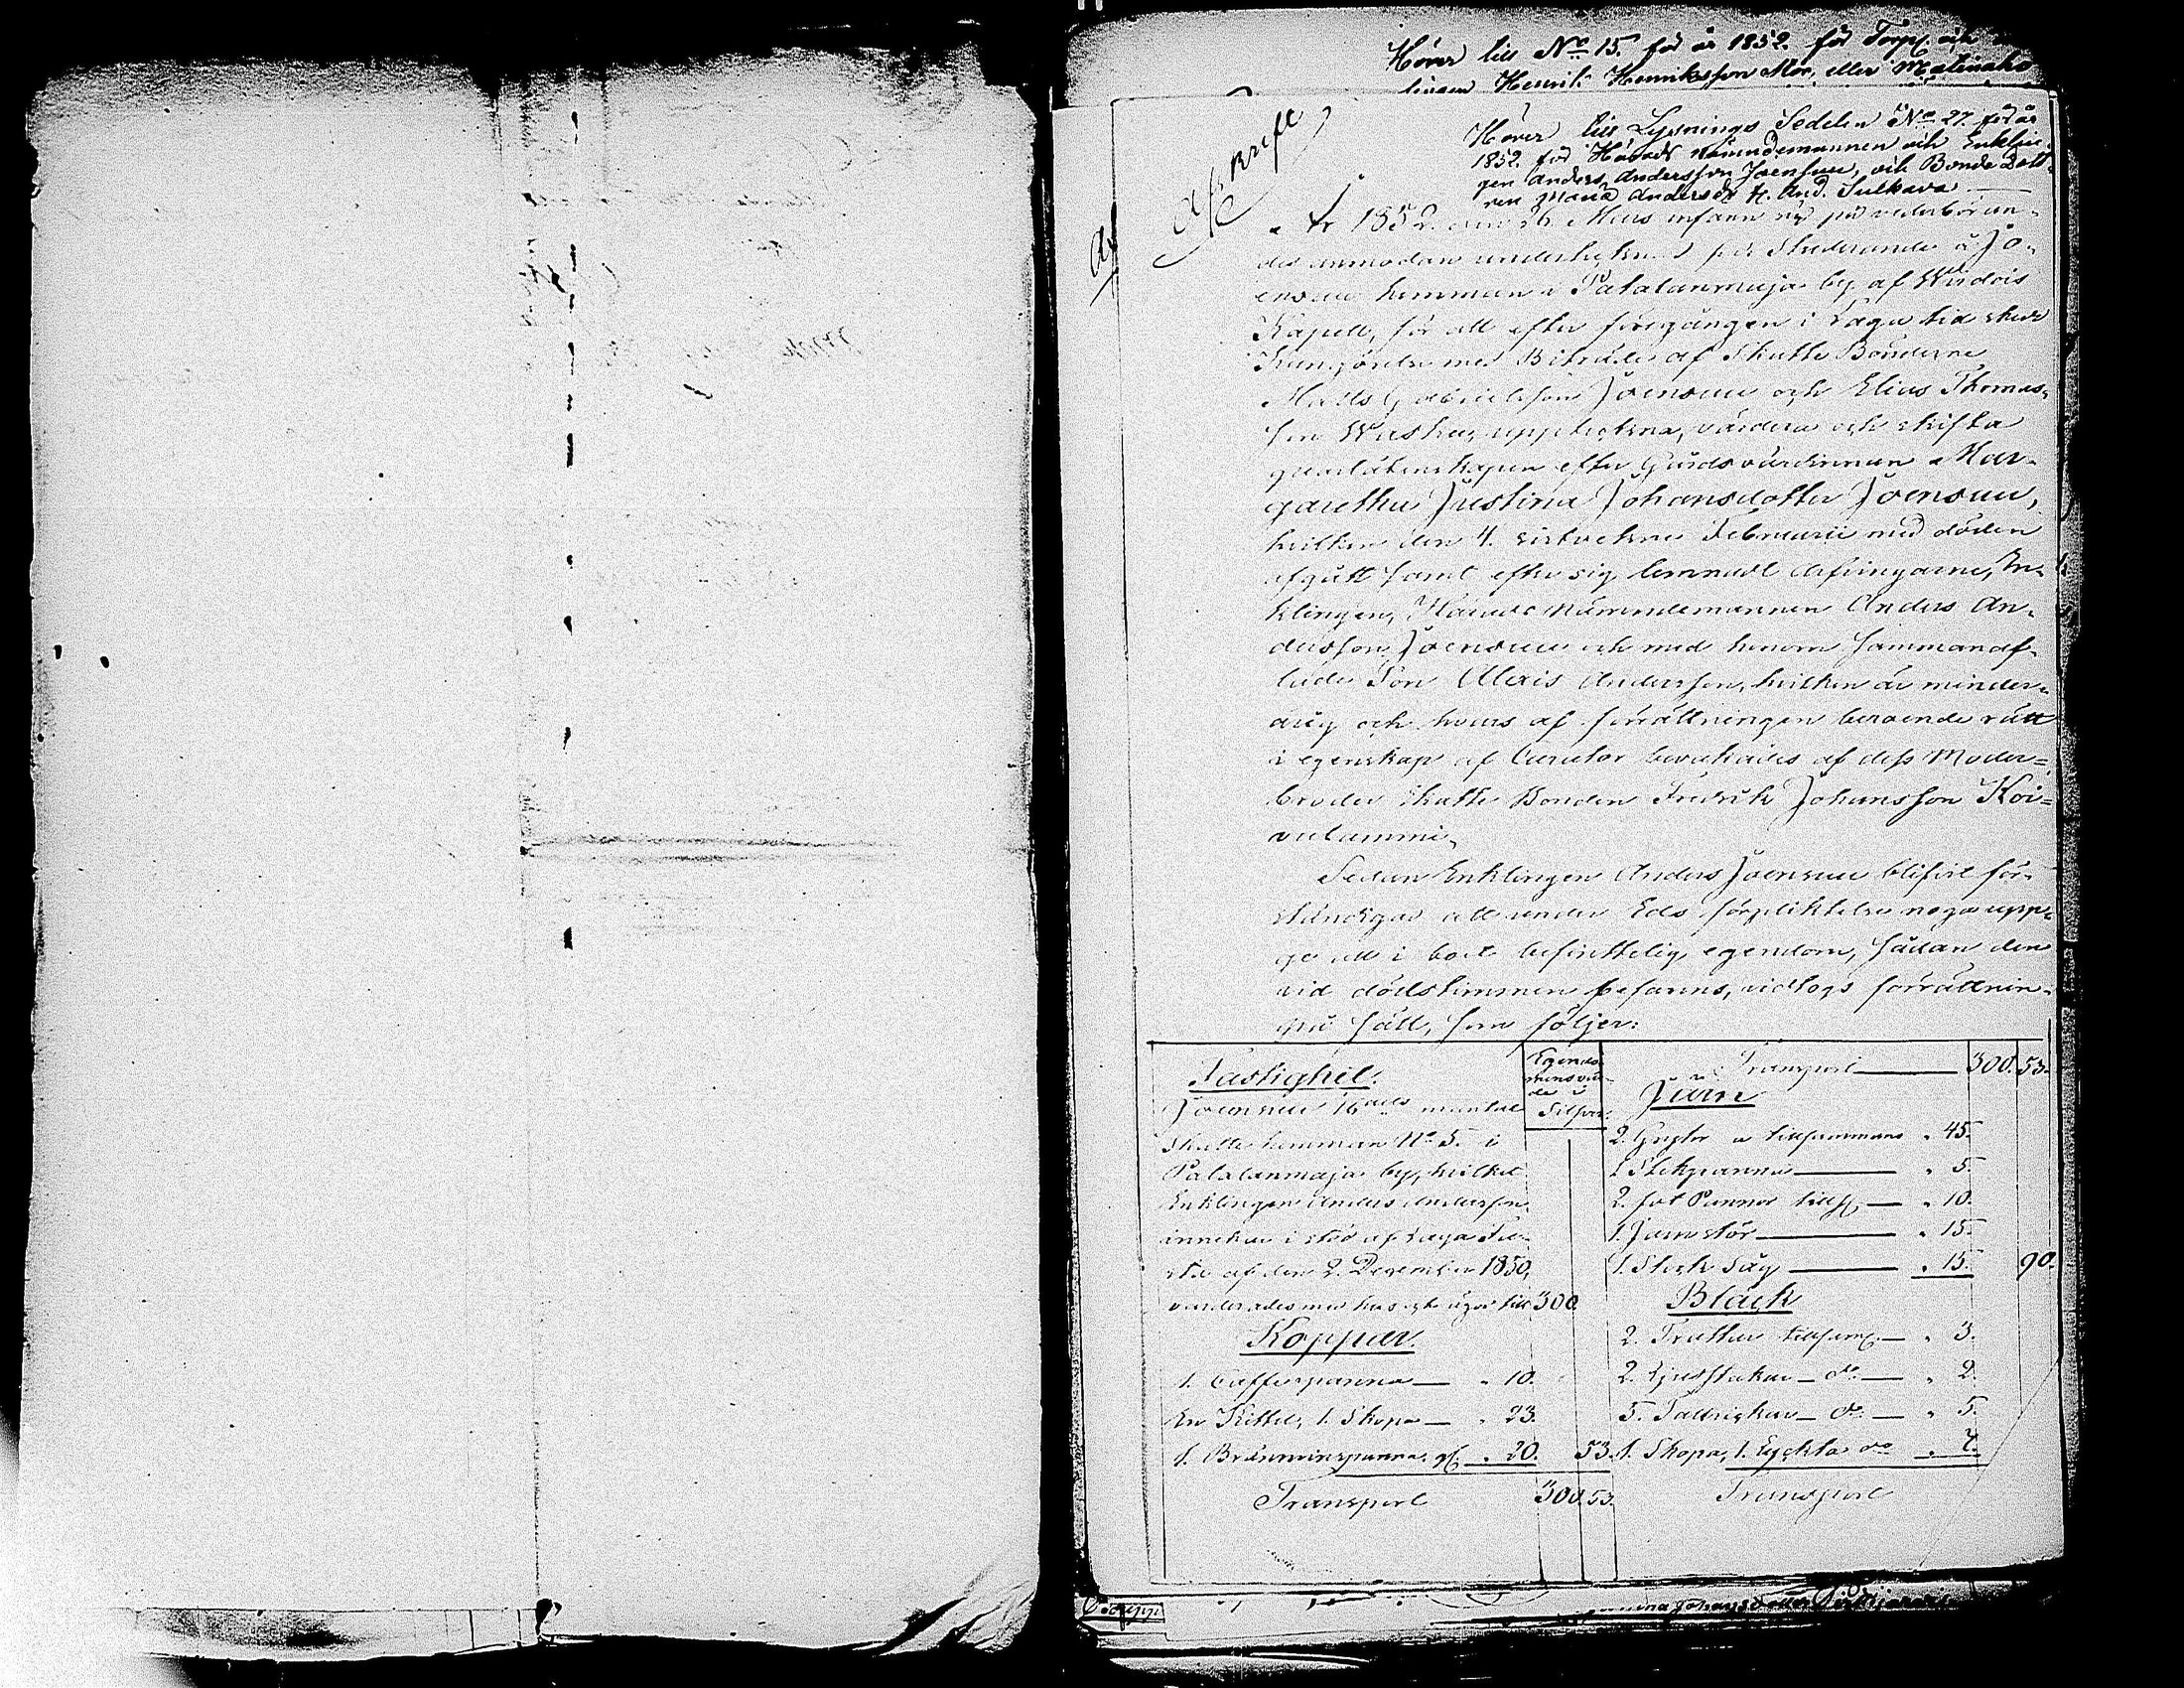 Hörer till No 15. för år 1852. för Torp. och
Henrik Henriksson Mör, eller Mateinaho
Afskrift
Hörer till Lysnings Sedeln No 27. för år
1852. för Härads nämndemannen och Enklin-
gen Anders Andersson Joensuu, och Bonde Dott-
ren Maria Andersdr H. And. Sulkava.
År 1852. den 26. Mars infann sig på vederböran-
des anmodan undertecknad på Skatterande å Jo-
ensuu hemman i Patalanmaja by af Wirdois
Kapell, för att efter föregången i Laga tid skedd
Kungörelse med Biträde af Skatte Bönderne
Matts Gabrielsson Joensuu och Elias Thomas-
son Waskuu, uppteckna, värdera och skifta
qvarlåtenskapen efter Gårdsvärdinnan Mar-
garetha Justina Johansdotter Joensuu,
hvilken den 4. sistvekne Februarii med döden
afgått samt efter sig lemnadt arfvingarne, En-
klingen, Härads nämndemannen Anders An-
dersson Joensuu och med honom samman af-
lade Son Alexis Andersson, hvilken är minder-
årig och hvars af förrättningen beroende rätt
i egenskap af Curator bevakades af dess Moder=
broder Skatte Bonden Fredrik Johansson Koi=
vulammi.
Sedan Enklingen Anders Joensuu blifvit för-
ständigad att under Eds förpliktelse noga upp-
ge all i boet befinttelig egendom, sådan den
vid dödstimmen befanns, vidtogs förrättnin-
gen sätt, som följer:
Fastighet.
Egendo-
mens vär-
de i
Silfver.
Joensuu 16dels mantal
Skatte hemman No 5. i
Patalanmaja by, hvilket
Enklingen Anders Andersson
innehar i stöd af Laga Fa-
sta af den 2. December 1850,
värderades med hus och ägor till 300.
Koppar.
1. Caffepanna — " 10.
En Kittel, 1. Skopa — " 23.
1. Brännvinspanna — " 20. 53.
Transport 300. 53.
Transport — 300. 53.
Järn
2. Grytor a tillsammans " 45.
1 Stekpanna — " 5.
2. fot Pannor tills. — " 10.
1. Järnstör — " 15.
1. Stock Såg — " 15. 90.
Bläck
2. Trattar tillsam. — " 3.
2. Ljusstakar — do — " 2.
5. Tallrickar — do — " 5.
1. Skopa, 1. Lyckta do " 7.
Transport